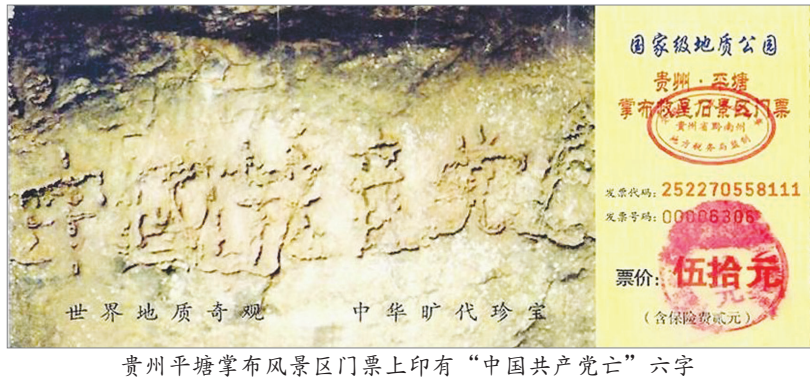 中國共产党亡
世界地质奇观 中华旷代珍宝
国家级地质公园
贵州·平塘
掌布救星石景区门票
贵州省黔南州
地方税务局监制
发票代码：252270558111
发票号码：00006306
票价：伍拾元
（含保险费贰元）
贵州平塘掌布风景区门票上印有“中国共产党亡”六字